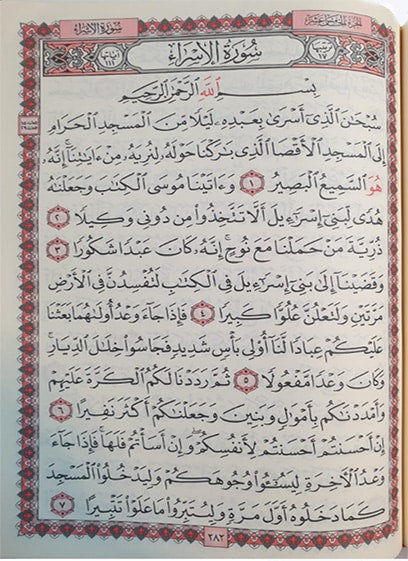 سُورَةُ الإِسْرَاءِ الجُزْءُ الخَامِسَ عَشَرَ
آيَاتُهَا ١١١ سُورَةُ الإِسْرَاءِ تَرْتِيبُهَا ١٧
بِسْمِ ٱللَّهِ ٱلرَّحْمَٰنِ ٱلرَّحِيمِ
سُبْحَٰنَ ٱلَّذِىٓ أَسْرَىٰ بِعَبْدِهِۦ لَيْلًا مِّنَ ٱلْمَسْجِدِ ٱلْحَرَامِ
إِلَى ٱلْمَسْجِدِ ٱلْأَقْصَا ٱلَّذِى بَٰرَكْنَا حَوْلَهُۥ لِنُرِيَهُۥ مِنْ ءَايَٰتِنَآ ۚ إِنَّهُۥ
هُوَ ٱلسَّمِيعُ ٱلْبَصِيرُ ١ وَءَاتَيْنَا مُوسَى ٱلْكِتَٰبَ وَجَعَلْنَٰهُ
هُدًى لِّبَنِىٓ إِسْرَٰٓءِيلَ أَلَّا تَتَّخِذُوا۟ مِن دُونِى وَكِيلًا ٢
ذُرِّيَّةَ مَنْ حَمَلْنَا مَعَ نُوحٍ ۚ إِنَّهُۥ كَانَ عَبْدًا شَكُورًا ٣
وَقَضَيْنَآ إِلَىٰ بَنِىٓ إِسْرَٰٓءِيلَ فِى ٱلْكِتَٰبِ لَتُفْسِدُنَّ فِى ٱلْأَرْضِ
مَرَّتَيْنِ وَلَتَعْلُنَّ عُلُوًّا كَبِيرًا ٤ فَإِذَا جَآءَ وَعْدُ أُولَىٰهُمَا بَعَثْنَا
عَلَيْكُمْ عِبَادًا لَّنَآ أُو۟لِى بَأْسٍ شَدِيدٍ فَجَاسُوا۟ خِلَٰلَ ٱلدِّيَارِ ۚ
وَكَانَ وَعْدًا مَّفْعُولًا ٥ ثُمَّ رَدَدْنَا لَكُمُ ٱلْكَرَّةَ عَلَيْهِمْ
وَأَمْدَدْنَٰكُم بِأَمْوَٰلٍ وَبَنِينَ وَجَعَلْنَٰكُمْ أَكْثَرَ نَفِيرًا ٦
إِنْ أَحْسَنتُمْ أَحْسَنتُمْ لِأَنفُسِكُمْ ۖ وَإِنْ أَسَأْتُمْ فَلَهَا ۚ فَإِذَا جَآءَ
وَعْدُ ٱلْءَاخِرَةِ لِيَسُۥٓـُٔوا۟ وُجُوهَكُمْ وَلِيَدْخُلُوا۟ ٱلْمَسْجِدَ
كَمَا دَخَلُوهُ أَوَّلَ مَرَّةٍ وَلِيُتَبِّرُوا۟ مَا عَلَوْا۟ تَتْبِيرًا ٧
٢٨٢